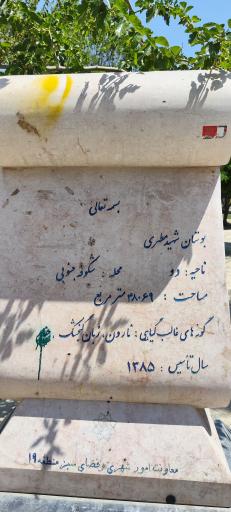 بسمه تعالی
بوستان شهید مطهری
ناحیه : دو محله : شکوفه جنوبی
مساحت : ۳۸۰۶۹ متر مربع
گونه های غالب گیاهی : نارون، زبان گنجشک
سال تأسیس : ۱۳۸۵
معاونت امور شهری و فضای سبز منطقه ۱۹